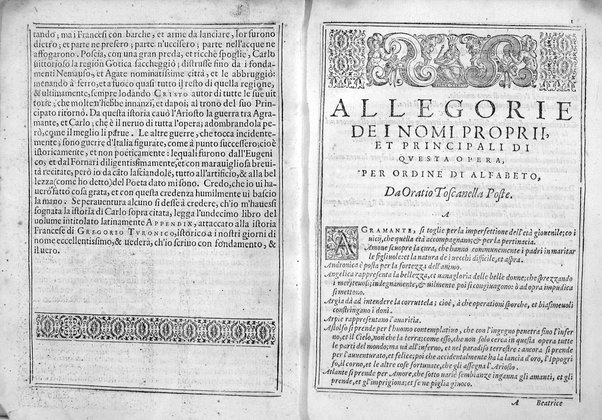 tando; ma i Francesi con barche, et arme da lanciare, lor furono
dietro; et parte ne presero; parte n'uccisero; parte nell'acque ne
affogarono. Poscia, con una gran preda, et ricche spoglie, Carlo
vittorioso la region Gotica saccheggiò; distrusse fino da i fonda-
menti Nemauso, et Agate nominatissime città, et le abbruggiò:
menando à ferro, et a fuoco quasi tutto il resto di quella regione,
& ultimamente, sempre lodando CRISTO autor di tutte le sue uit
torse, che molte n'hebbe innanzi, et dapoi; al trono del suo Prin
cipato ritornò. Da questa istoria cauò l'Ariosto la guerra tra Agra
mante, et Carlo; che è il neruo di tutta l'opera; adombrandola pe
rò; come il meglio li parue. Le altre guerre, che tocca incidente-
mente, sono guerre d'Italia figurate, come à punto successero; cio è
istoricamente, et non poeticamente: lequali furono dall'Eugeni
co; et dal Fornari diligentissimamente, et con marauigliosa breui
tà recitate, però io da cāto lasciandole, tutto all'artificio, & alla bel
lezza (come ho detto) del Poeta dato mi sono. Credo, che io u'ha
uerò fatto cosa grata, et con questa credenza humilmente ui bascio
la mano. Se perauentura alcuno si desse à credere, ch'io m'hauessi
sognata la istoria di Carlo sopra citata, legga l'undecimo libro del
volume intitolato latinamente APPENDIX, attaccato alla istoria
Francese di GREGORIO TVRONICO, istorico a i nostri giorni di
nome eccellentissimo, & uederà, ch'io scriuo con fondamento, &
il uero.
1
ALLEGORIE
DE I NOMI PROPRII,
ET PRINCIPALI DI
QVESTA OPERA,
PER ORDINE DI ALFABETO,
Da Oratio Toscanella Poste.
A
AGRAMANTE, si toglie per la imperfettione dell'età giouenile; co i
uicij, che quella età accompagnano; & per la pertinacia.
Amone scuopre la cura, che hanno communemente i padri in maritar
le figliuole: et la natura de i uecchi difficile, et aspra.
Andronica è posta per la fortezza dell'animo.
Angelica rappresenta la bellezza, et uanagloria delle belle donne; che sprezzando
i meriteuoli; indegnamente, & uilmente poi si congiungono: ò ad opra impudica
si mettono.
Argia dà ad intendere la corruttela; cioè, à che operationi sporche, et biasmeuoli
constringano i doni.
Arpie rappresentano l'auaritia.
Astolfo si prende per l'huomo contemplatiuo, che con l'ingegno penetra fino l'infer-
no, et il Cielo, non che la terra; come esso, che non solo cerca in questa opera tutte
le parti del mondo; ma uà all'inferno, et nel paradiso terrestre: ancora si prende
per l'auuenturato, et felice; poi che accidentalmente ha la lancia d'oro, l'Ippogri
fo, il corno, et le altre cose fortunate, che gli assegna l'Ariosto.
Atlante si prende per Amore, che sotto uarie sembianze inganna gli amanti, et gli
prende, et gl'imprigiona; et se ne piglia giuoco.
A Beatrice